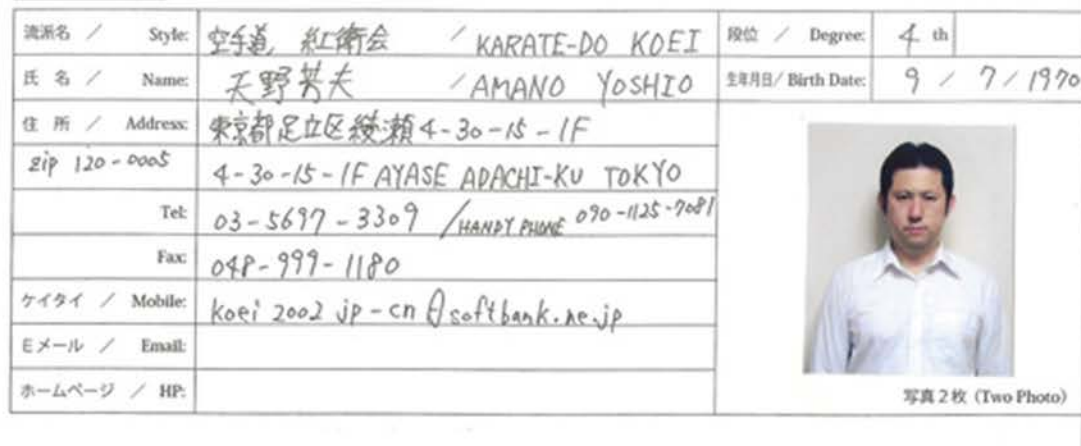 流派名 / Style: 空手道 紅衛会 / KARATE-DO KOEI 段位 / Degree: 4 th
氏 名 / Name: 天野芳夫 / AMANO YOSHIO 生年月日/ Birth Date: 9 / 7 / 1970
住 所 / Address: 東京都足立区綾瀬4-30-15-1F
zip 120-0005 4-30-15-1F AYASE ADACHI-KU TOKYO
Tel: 03-5697-3309 / HANDY PHONE 090-1125-7081
Fax: 048-999-1180
ケイタイ / Mobile: koei2002jp-cn@softbank.ne.jp
Eメール / Email:
ホームページ / HP:
写真2枚 (Two Photo)